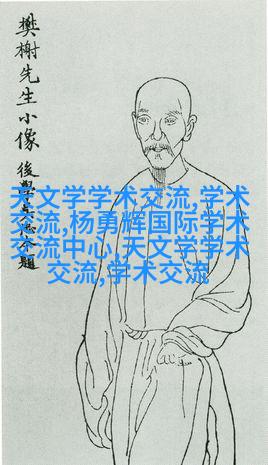 樊榭先生小像
後學題
天文学学术交流,学术
交流,杨勇辉国际学术
交流中心,天文学学术
交流,学术交流